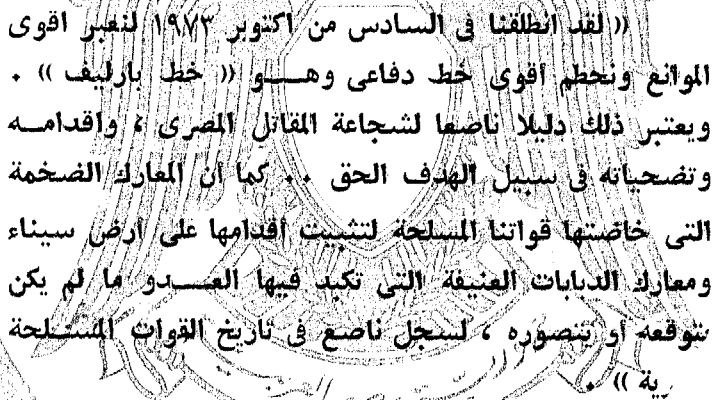 (( لقد انطلقنا فى السادس من اكتوبر ١٩٧٣ لنعبر اقوى
الموانع ونحطم اقوى خط دفاعى وهـــو (( خط بارليف )) .
ويعتبر ذلك دليلا ناصعا لشجاعة المقاتل المصرى ، واقدامــه
وتضحياته فى سبيل الهدف الحق .. كما أن المعارك الضخمة
التى خاضتها قواتنا المسلحة لتثبيت أقدامها على أرض سيناء
ومعارك الدبابات العنيفة التى تكبد فيها العـــدو ما لم يكن
نتوقعه أو نتصوره ، لسجل ناصع فى تاريخ القوات المسـلحة
رية )) .